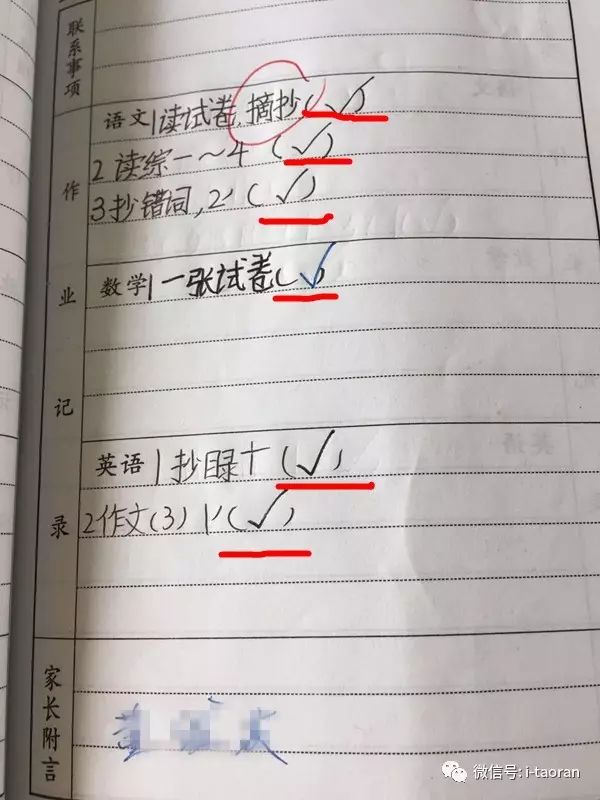 联系事项
作业记录
语文 1读试卷,摘抄(✓)
2 读综一~4 (✓)
3抄错词,2' (✓)
数学 1一张试卷(✓)
英语 1抄目录十 (✓)
2作文(3) 1'(✓)
家长附言
微信号:i-taoran